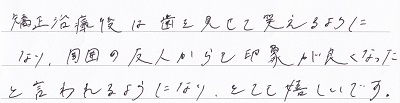 矯正治療後は歯を見せて笑えるように
なり、周囲の友人からも印象が良くなった
と言われるようになり、とても嬉しいです。